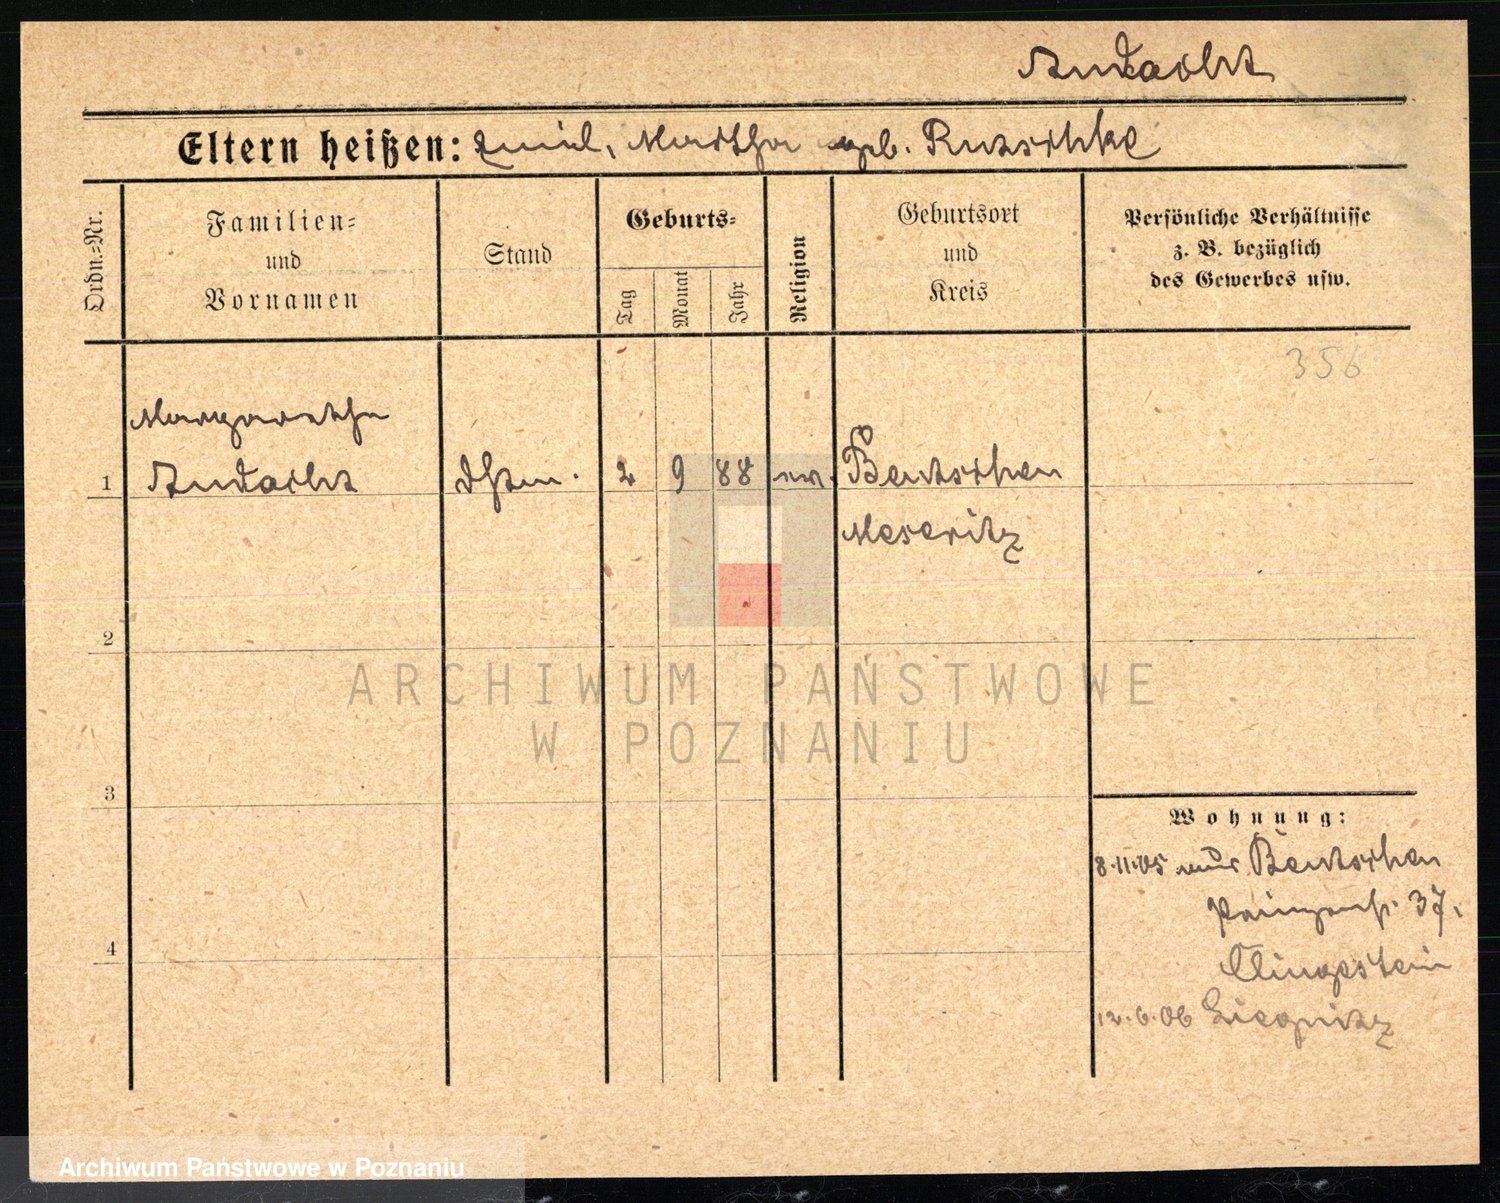 Andacht
Eltern heißen: Emil, Martha geb. Rutschke
Ordn.=Nr.
Familien=
und
Vornamen
Stand
Geburts=
Tag
Monat
Jahr
Religion
Geburtsort
und
Kreis
Persönliche Verhältnisse
z. B. bezüglich
des Gewerbes usw.
356
Margarethe
1 Andacht 2 9 88 ev. Bentschen
Meseritz
2
ARCHIWUM PAŃSTWOWE
W POZNANIU
3
Wohnung:
8.11.05 aus Bentschen
37.
4
Klingestein
12.6.06 Liegnitz
Archiwum Państwowe w Poznaniu